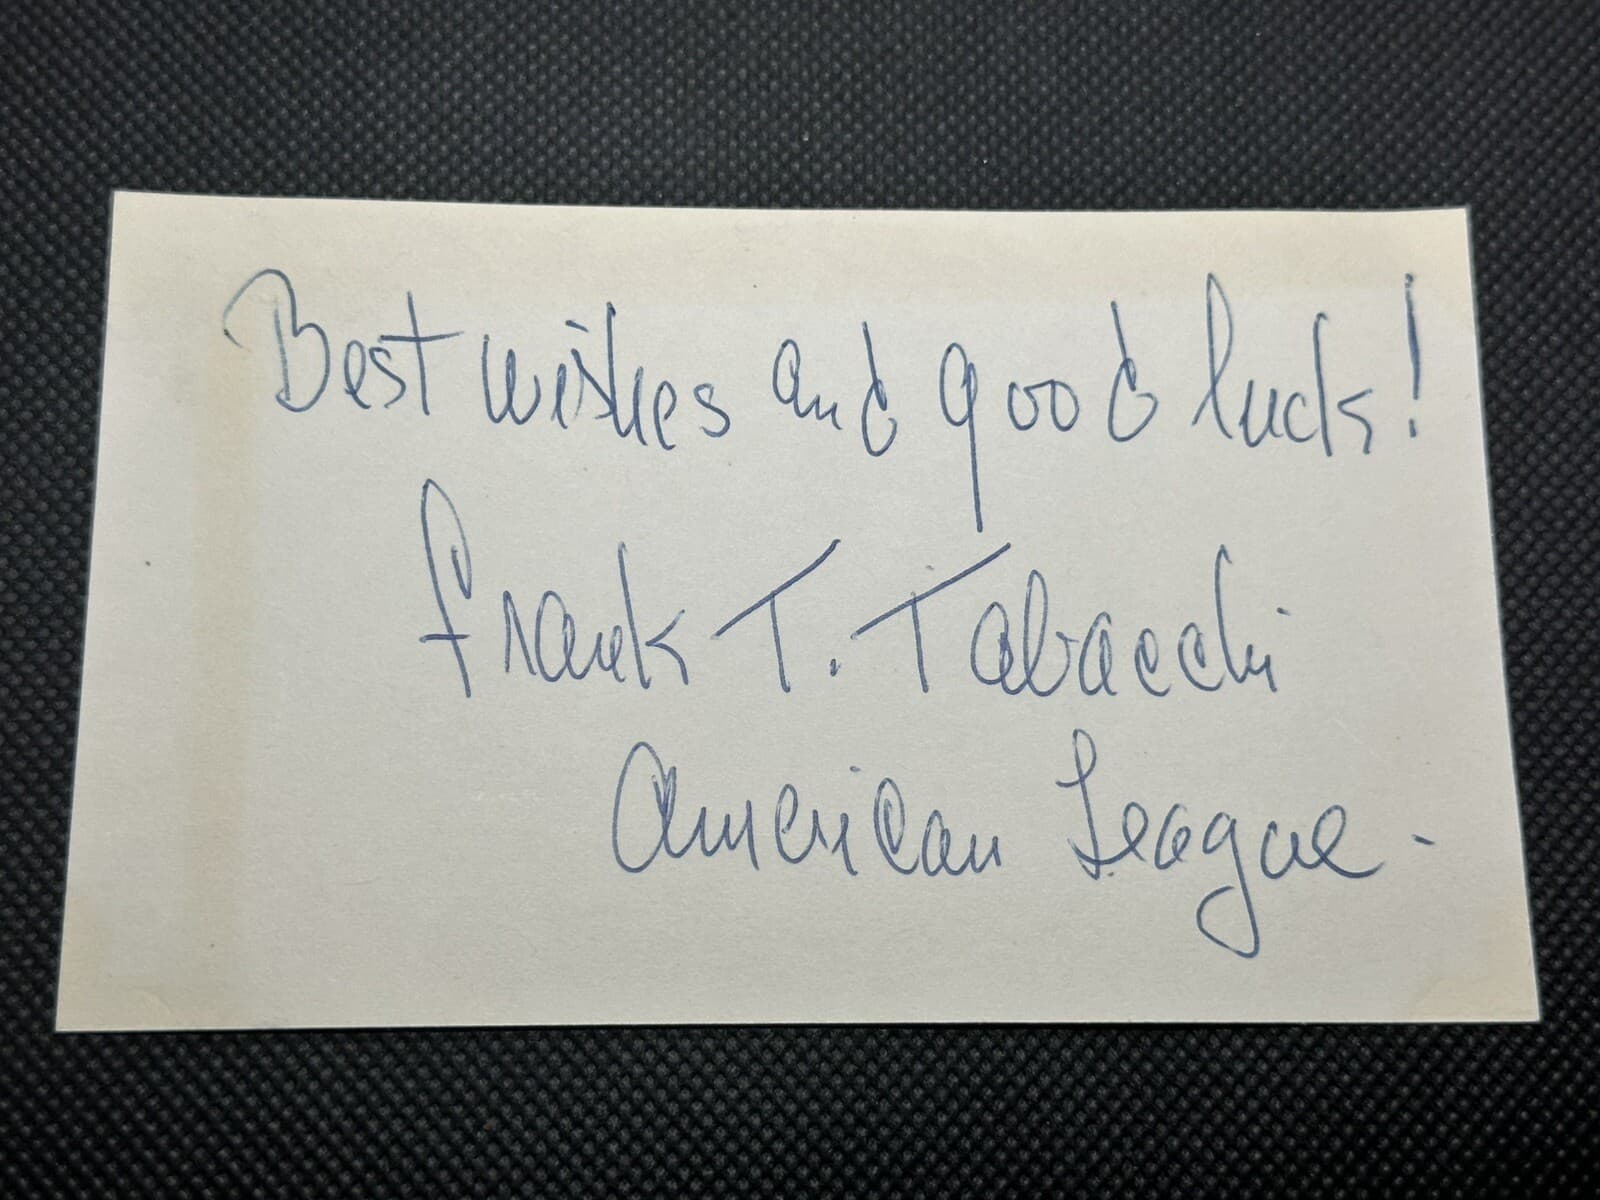 Best wishes and good luck!
Frank T. Tabacchi
American League.